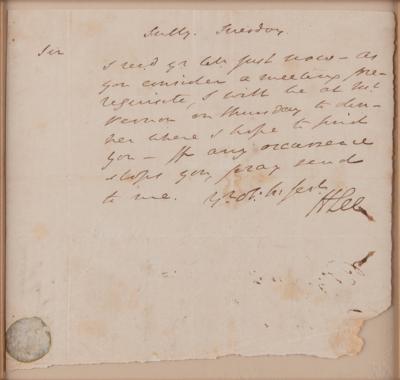 Sully. Tuesday
Sir
I recd yr let. just now – as
you consider a meeting pre-
requisite, I will be at Mt
Vernon on thursday to din-
ner where I hope to find
you – If any occurrence
stops you, pray send
to me. Yr ob. h. sert
H Lee